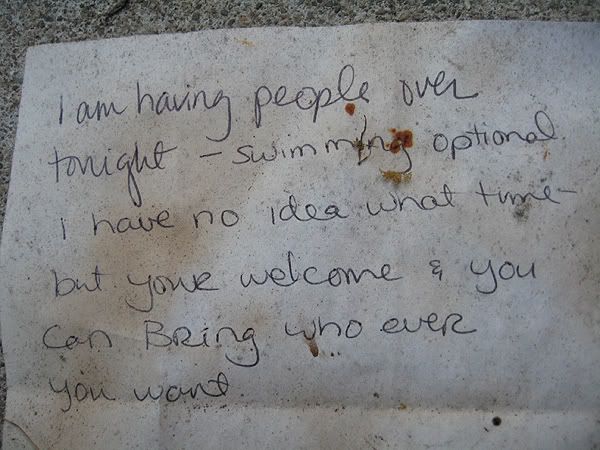 I am having people over
tonight - swimming optional.
i have no idea what time-
but your welcome & you
can BRing who ever
you want.